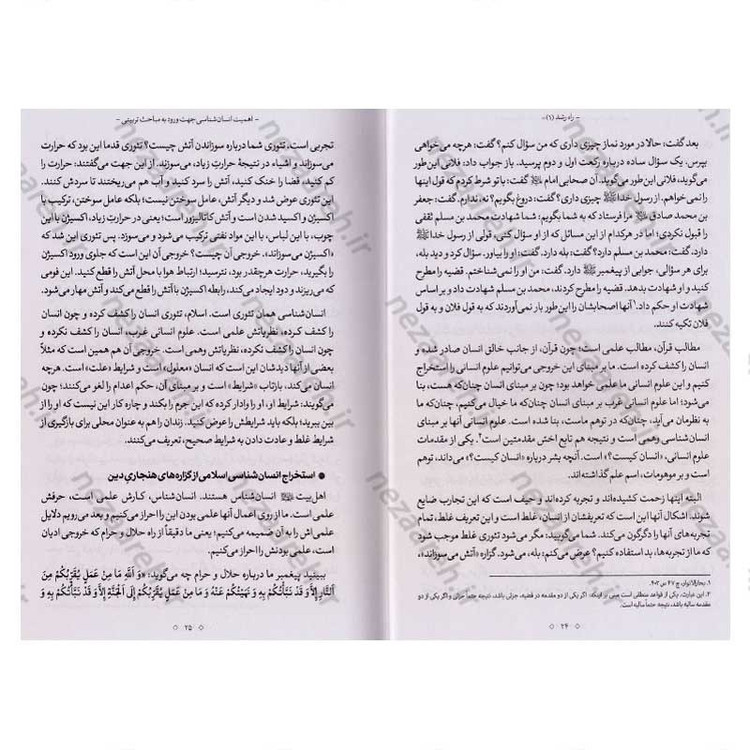 - راه رشد (۱) -
بعد گفت: حالا در مورد نماز چیزی داری که من سؤال کنم؟ گفت: هرچه می‌خواهی
بپرس. یک سؤال ساده درباره رکعت اول و دوم پرسید. باز جواب داد: فلانی این‌طور
می‌گوید، فلانی این‌طور می‌گوید. آن صحابی امام گفت: با تو شرط کردم که قول اینها
را نمی‌خواهم. از رسول خدا چیزی داری؟ گفت: دروغ بگویم؟ نه، ندارم. گفت: جعفر
بن محمد صادق مرا فرستاد که به شما بگویم: شما شهادت محمد بن مسلم ثقفی
را قبول نکردی؛ اما در هرکدام از این مسائل که از او سؤال کنی، قولی از رسول خدا
دارد. گفت: محمد بن مسلم دارد؟ گفت: بله، دارد. گفت: او را بیاور. سؤال کرد و دید بله،
برای هر سؤالی، جوابی از پیغمبر دارد. گفت: من او را نمی‌شناختم. قضیه را مطرح
کنید و او شهادت بدهد. قضیه را مطرح کردند، محمد بن مسلم شهادت داد و بر اساس
شهادت او حکم داد.۱ آنها اصحابشان را این‌طور بار نمی‌آوردند که به قول فلان و به قول
فلان تکیه کنند.
مطالب قرآن، مطالب علمی است؛ چون قرآن، از جانب خالق انسان صادر شده و
انسان را کشف کرده است. ما بر مبنای این خروجی می‌توانیم علوم انسانی را استخراج
کنیم و این علوم انسانی ما علمی خواهد بود؛ چون بر مبنای انسان چنان‌که هست، بنا
می‌شود؛ اما علوم انسانی غرب بر مبنای انسان چنان‌که ما خیال می‌کنیم، چنان‌که ما
به نظرمان می‌آید، چنان‌که در توهم ماست، بنا شده است. علوم انسانی آنها بر مبنای
انسان‌شناسی وهمی است و نتیجه هم تابع اخس مقدمتین است۲. یکی از مقدمات
علوم انسانی، «انسان کیست؟» است. آنچه بشر درباره «انسان کیست؟» می‌داند، توهم
است و بر موهومات، اسم علم گذاشته‌اند.
البته اینها زحمت کشیده‌اند و تجربه کرده‌اند و حیف است که این تجارب ضایع
شوند. اشکال آنها این است که تعریفشان از انسان، غلط است و این تعریف غلط، تمام
تجربه‌های آنها را دگرگون می‌کند. شما می‌گویید: مگر می‌شود تئوری غلط موجب شود
که ما از تجربه‌ها، بد استفاده کنیم؟ عوض می‌کنم: بله، می‌شود. گزاره «آتش می‌سوزاند»،
۱. بحارالانوار، ج ۴۷ ص ۴۰۲.
۲. این عبارت، یکی از قواعد منطقی است مبنی بر اینکه: اگر یکی از دو مقدمه در قضیه، جزئی باشد، نتیجه حتماً جزئی و اگر یکی از دو
مقدمه سالبه باشد، نتیجه حتماً سالبه است.
۲۴
- اهمیت انسان‌شناسی جهت ورود به مباحث تربیتی -
تجربی است. تئوری شما درباره سوزاندن آتش چیست؟ تئوری قدما این بود که حرارت
می‌سوزاند و اشیاء در نتیجهٔ حرارتِ زیاد، می‌سوزند. از این جهت می‌گفتند: حرارت را
کم کنید، فضا را خنک کنید، آتش را سرد کنید و آب هم می‌ریختند تا سردش کنند.
این تئوری عوض شد و دیگر آتش، عامل سوختن نیست؛ بلکه عامل سوختن، ترکیب با
اکسیژن و اکسید شدن است و آتش کاتالیزور است؛ یعنی در حرارتِ زیاد، اکسیژن با این
چوب، با این لباس، با این مواد نفتی ترکیب می‌شود و می‌سوزد. پس تئوری این شد که
«اکسیژن می‌سوزاند». خروجی آن چیست؟ خروجی آن این است که جلوی ورود اکسیژن
را بگیرید. حرارت هرچقدر بود، نترسید؛ ارتباط هوا با محل آتش را قطع کنید. این فومی
که می‌ریزند و دود ایجاد می‌کند، رابطه اکسیژن با آتش را قطع می‌کند و آتش مهار می‌شود.
انسان‌شناسی همان تئوری است. اسلام، تئوری انسان را کشف کرده و چون انسان
را کشف کرده، نظریاتش علمی است. علوم انسانی غرب، انسان را کشف نکرده و
چون انسان را کشف نکرده، نظریاتش وهمی است. خروجی آن هم همین است که مثلاً
بعضی از آنها دیدشان این است که انسان «معلول» است و شرایط «علت» است. هرچه
انسان می‌کند، بازتاب «شرایط» است و بر مبنای آن، حکم اعدام را لغو می‌کنند؛
می‌گویند: شرایط او، او را وادار کرده که این جرم را بکند و چاره کار این نیست که او را از
بین ببرید؛ بلکه باید شرایطش را عوض کنید. زندان را هم به عنوان محلی برای بازگیری از
شرایط غلط و عادت دادن به شرایط صحیح، تعریف می‌کنند.
● استخراج انسان‌شناسی اسلامی از گزاره‌های هنجاری دین
اهل‌بیت انسان‌شناس هستند. انسان‌شناس، کارش علمی است، حرفش
علمی است. ما از روی اعمال آنها علمی بودن این را احراز می‌کنیم. بعد می‌رویم دلایل
علمی‌اش را به آن ضمیمه می‌کنیم؛ یعنی ما دقیقاً از راه حلال و حرام که خروجی ادیان
است، علمی بودنش را احراز می‌کنیم.
ببینید پیغمبر ما درباره حلال و حرام چه می‌گوید: «وَ اللَّهِ مَا مِنْ عَمَلٍ يُقَرِّبُكُمْ مِنَ
النَّارِ إِلَّا وَ قَدْ نَبَّأْتُكُمْ بِهِ وَ نَهَيْتُكُمْ عَنْهُ وَ مَا مِنْ عَمَلٍ يُقَرِّبُكُمْ إِلَى الْجَنَّةِ إِلَّا وَ قَدْ نَبَّأْتُكُمْ بِهِ وَ
۲۵
nezaarah.ir